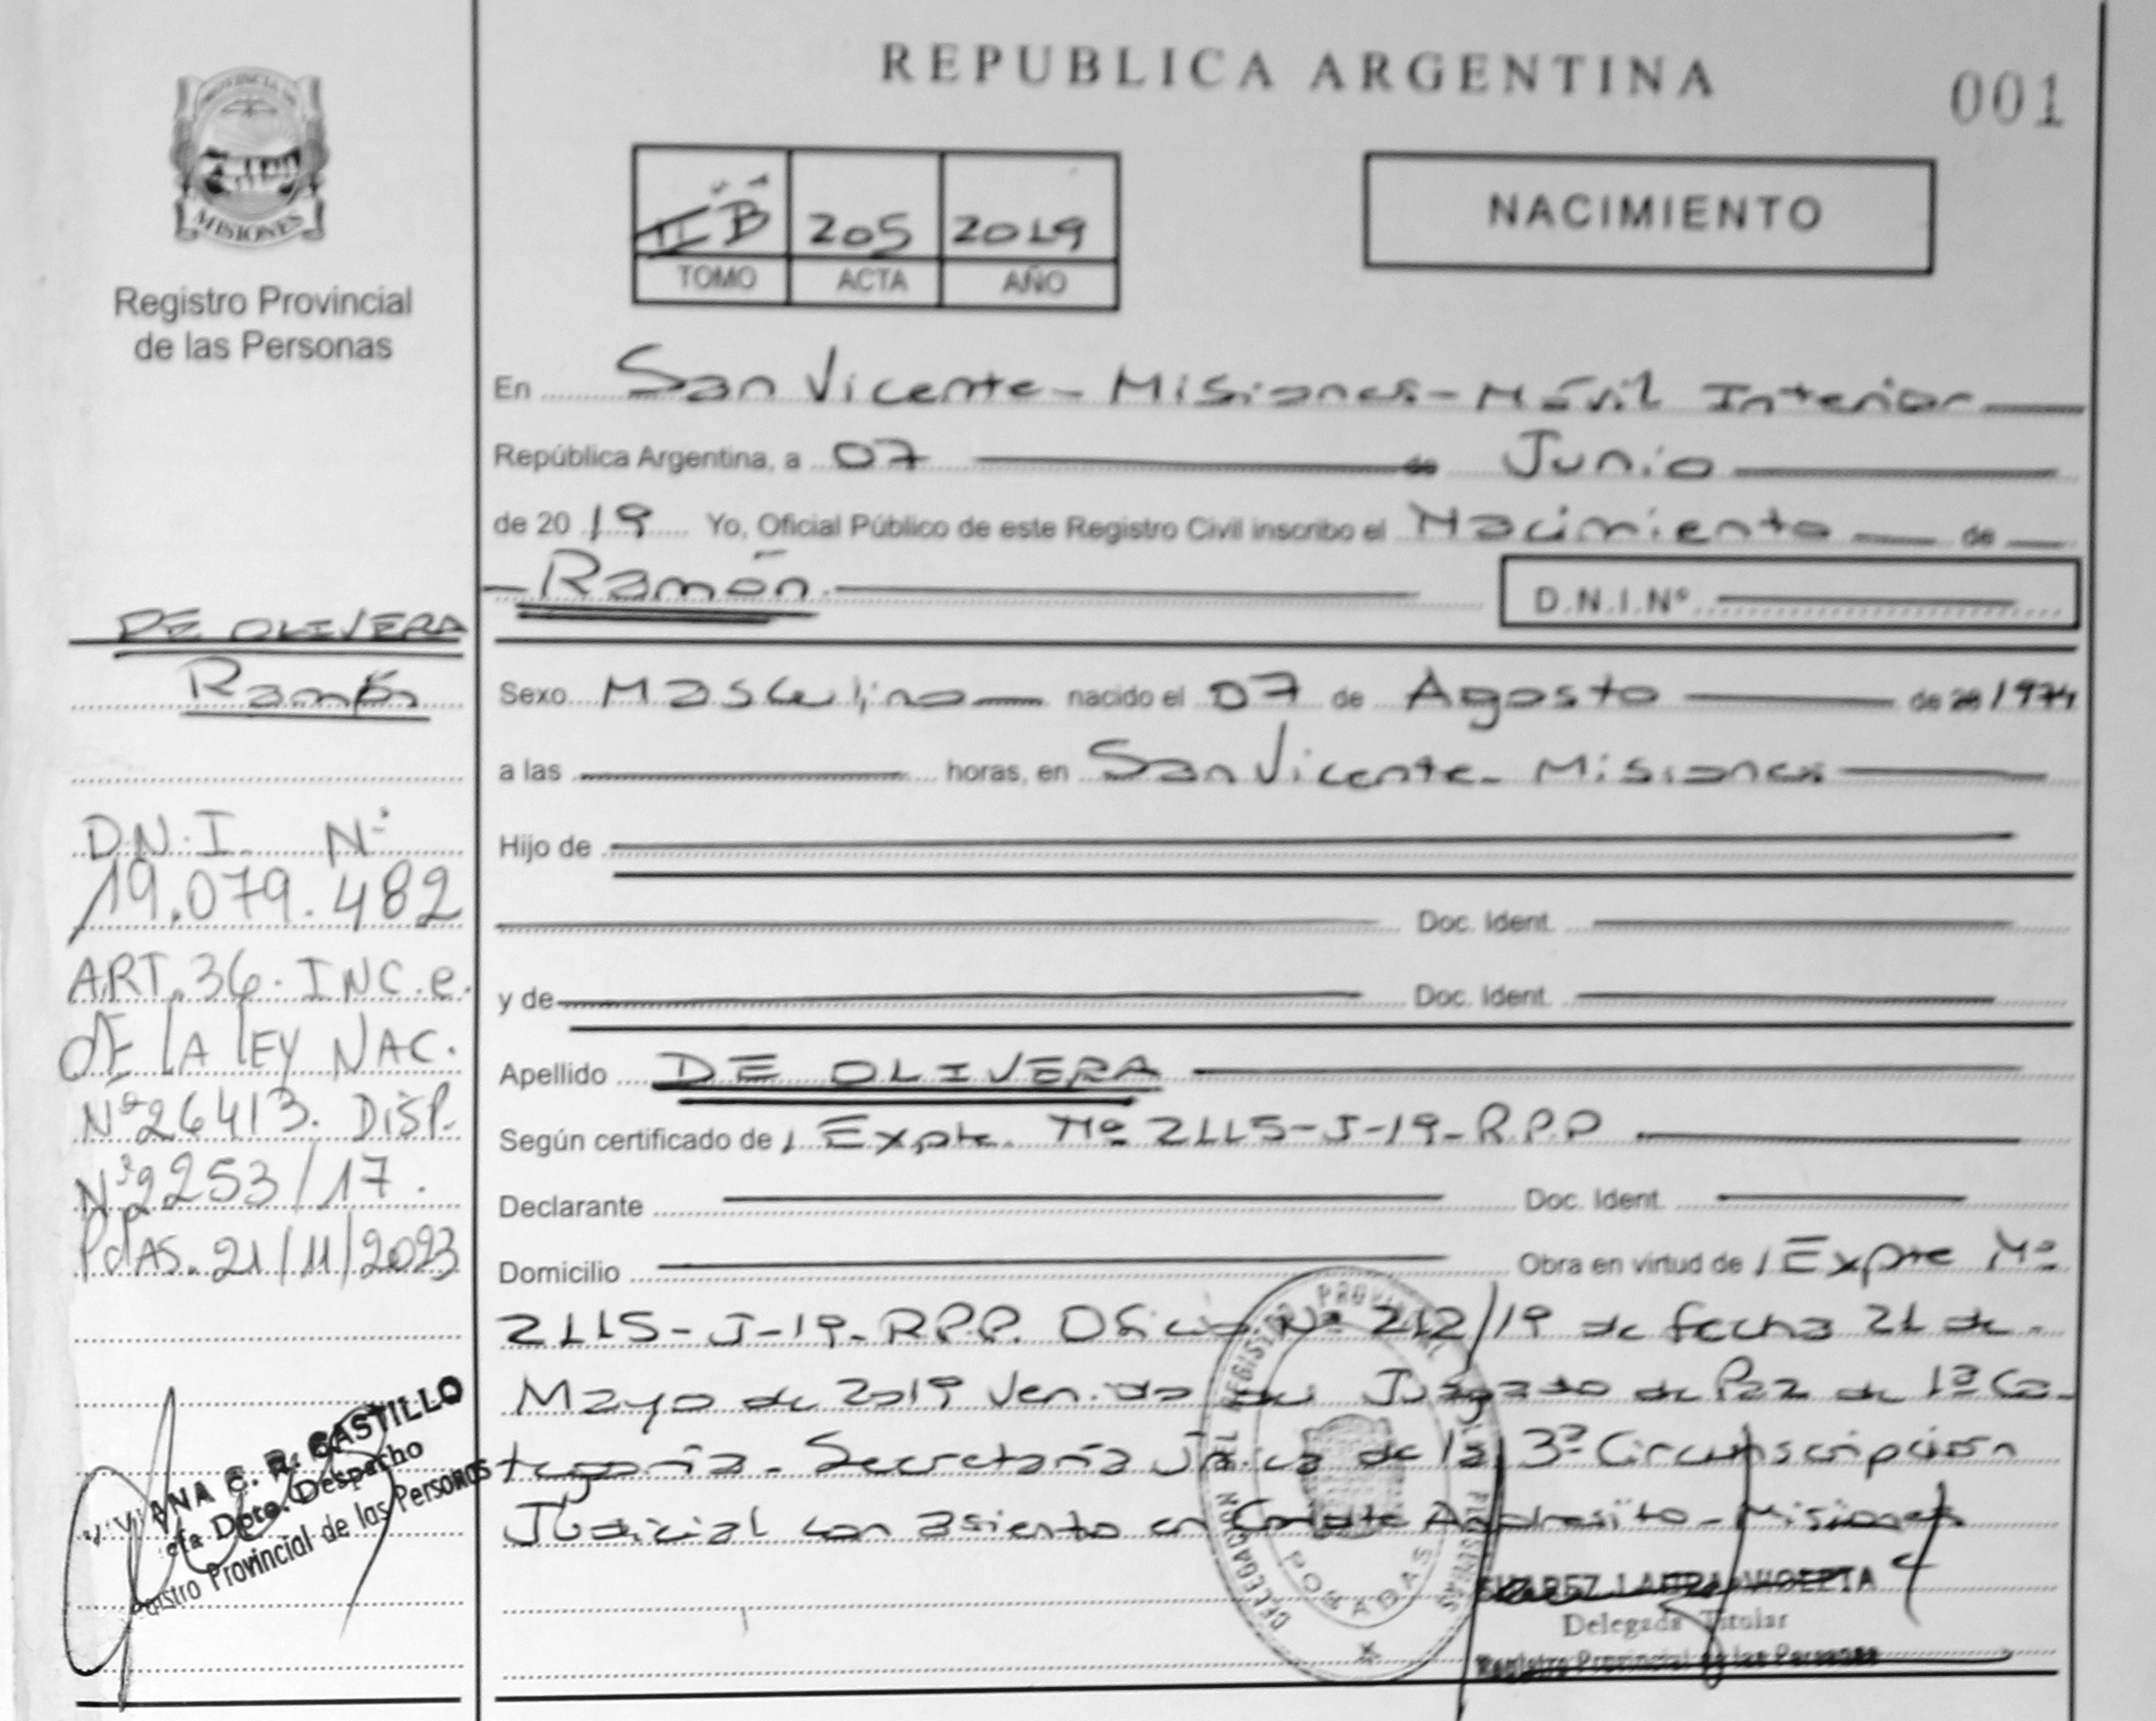 REPUBLICA ARGENTINA
001
PROVINCIA DE
MISIONES
Registro Provincial
de las Personas
II B 205 2019
TOMO ACTA AÑO
NACIMIENTO
En San Vicente - Misiones - Móvil Interior
República Argentina, a 07 de Junio
de 2019 Yo, Oficial Público de este Registro Civil inscribo el Nacimiento de
Ramón.
D.N.I.Nº
DE OLIVERA
Ramón
D.N.I. Nº
19.079.482
ART. 36. INC. e.
dE lA lEY NAC.
Nº 26413. DISP.
Nº 2253/17.
PdAS. 21/11/2023
Sexo Masculino nacido el 07 de Agosto de 20 1974
a las horas, en San Vicente - Misiones
Hijo de
Doc. Ident.
y de Doc. Ident.
Apellido DE OLIVERA
Según certificado de / Expte. Nº 2115-J-19-RPP
Declarante Doc. Ident.
Domicilio Obra en virtud de / Expte Nº
2115-J-19-RPP. Oficio Nº 212/19 de fecha 21 de
Mayo de 2019 Venido del Juzgado de Paz de 1ª Ca-
tegoría - Secretaría Única de la 3ª Circunscripción
Judicial con asiento en Andresito - Misiones
C. R. CASTILLO
Dpto. Despacho
Provincial de las Personas
DELEGACION DEL REGISTRO PROVINCIAL
POSADAS
Delegada Titular
Registro Provincial de las Personas